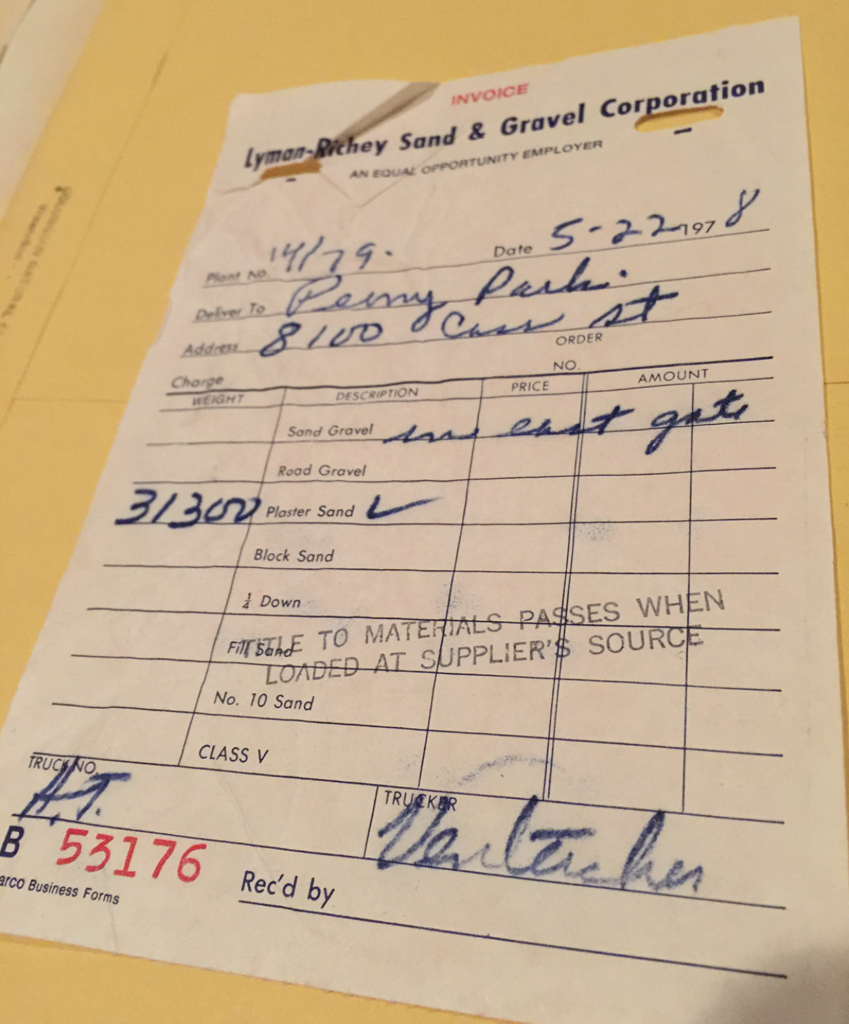 INVOICE
Lyman-Richey Sand & Gravel Corporation
AN EQUAL OPPORTUNITY EMPLOYER
Plant No. 14/79. Date 5-22- 1978
Deliver To Peony Park.
Address 8100 Cass st
ORDER
Charge NO.
WEIGHT DESCRIPTION PRICE AMOUNT
Sand Gravel east gate
Road Gravel
31300 Plaster Sand ✓
Block Sand
¼ Down
Fill Sand
TITLE TO MATERIALS PASSES WHEN
LOADED AT SUPPLIER'S SOURCE
No. 10 Sand
CLASS V
TRUCK NO. TRUCKER
H.T.
B 53176
arco Business Forms
Rec'd by